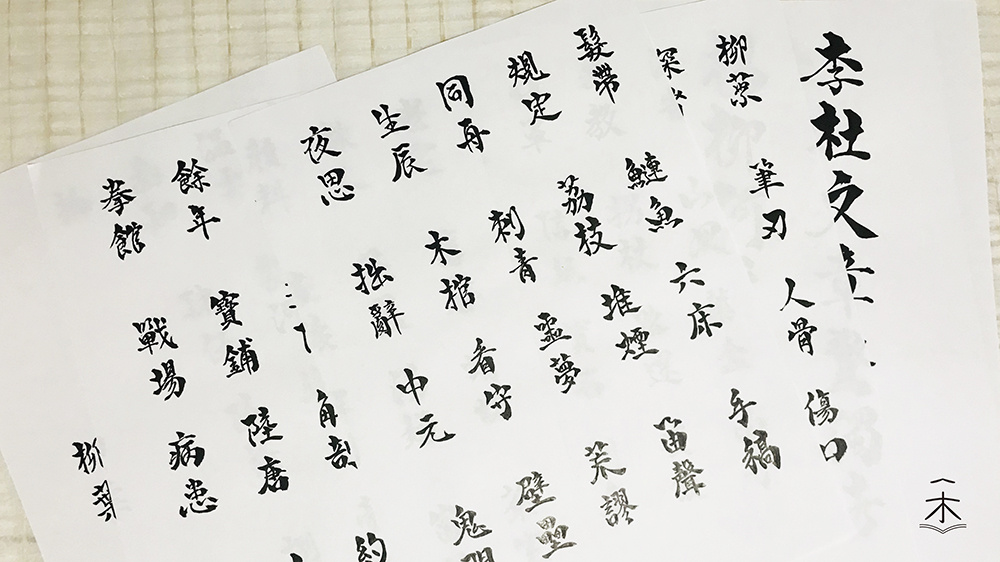 李杜文
柳葉 筆刃 人骨 傷口
髮帶 鰱魚 六床 手稿
規定 荔枝 堆煙 笛聲
同舟 刺青 靈夢 荒謬
生辰 木棺 看守 壁壘
夜思 拙辭 中元 鬼
角 約
餘年 寶鋪 陸唐
拳館 戰場 病患
柳
一木